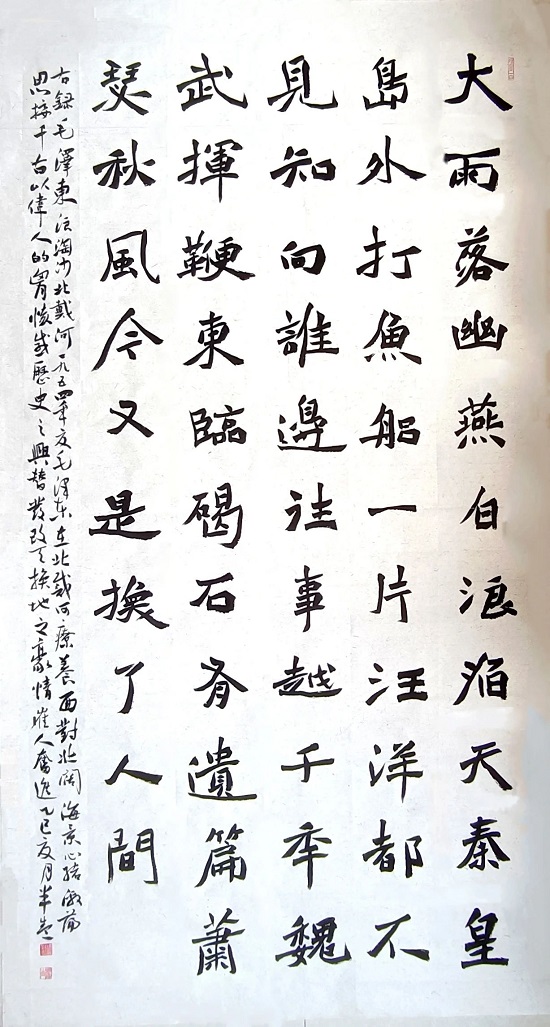 大雨落幽燕白浪滔天秦皇
島外打魚船一片汪洋都不
見知向誰邊往事越千年魏
武揮鞭東臨碣石有遺篇蕭
瑟秋風今又是換了人間
右錄毛澤東浪淘沙北戴河一九五四年夏毛澤東在北戴河療養面對壯闊海景心緒激蕩
思接千古以偉人的胸懷感歷史之興替發改天換地之豪情催人奮進乙巳夏月半